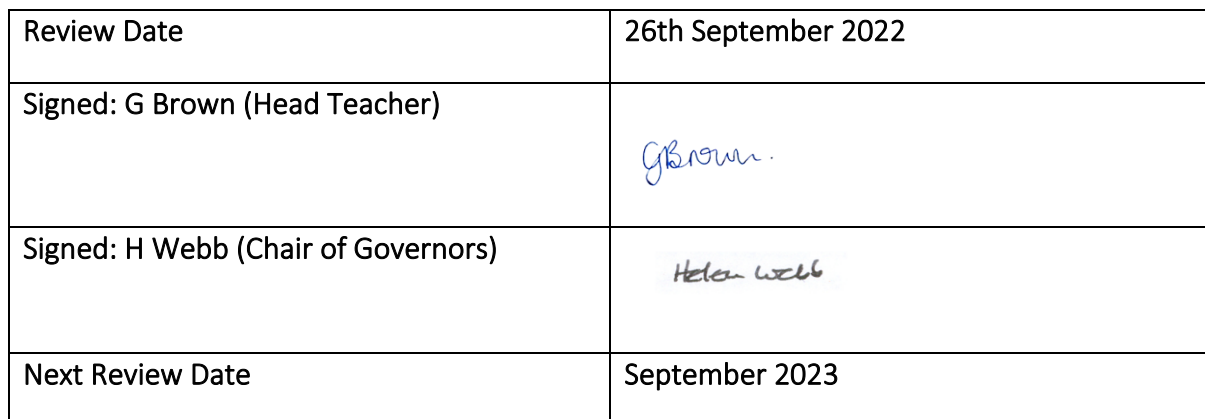 Review Date 26th September 2022
Signed: G Brown (Head Teacher)
GBrown.
Signed: H Webb (Chair of Governors)
Helen Webb
Next Review Date September 2023